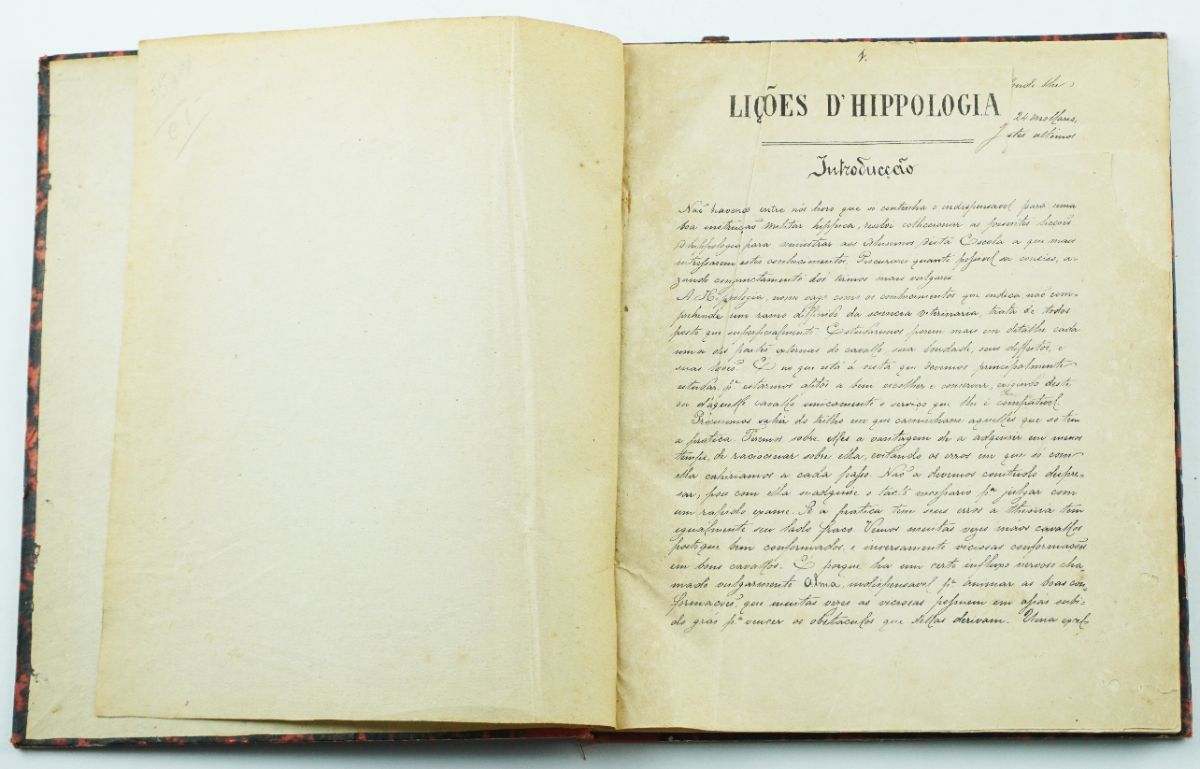 1.
LIÇÕES D'HIPPOLOGIA
24 molares,
estes ultimos
Introducção
Não havendo entre nós livro que só contenha o indispensavel para uma
boa instrucção militar hippica, resolvi colleccionar as presentes licções
d'Hippologia para ministrar aos Alumnos desta Escola a que mais
interessarem estes conhecimentos. Procurarei quanto possivel ser conciso, u-
zando conjunctamente dos termos mais vulgares.
A Hippologia, nome vago como os conhecimentos que indica não com-
prehende um ramo diffinido da sciencia veterinaria, trata de todos
posto que superficialmente. Estudaremos porem mais em detalhe cada
uma das partes externas do cavallo, sua bondade, seus deffeitos, e
suas lesões. É no que está á vista que devemos principalmente
estudar, pª estarmos aptos a bem escolher e conservar, exigindo deste
ou d'aquelle cavallo unicamente o serviço que lhe é compativel.
Procuremos sahir do trilho em que caminham aquelles que só tem
a pratica. Teremos sobre elles a vantagem de a adquirir em menos
tempo, de raciocinar sobre ella, evitando os erros em que só com
ella cahiriamos a cada passo. Não a devemos comtudo despre-
sar, pois com ella se adquire o tacto necessario pª julgar com
um rapido exame. Se a pratica tem seus erros a theoria tem
egualmente seu lado fraco. Vemos muitas vezes maos cavallos
posto que bem conformados, e inversamente viciosas conformações
em bons cavallos. É porque ha um certo influxo nervoso cha-
mado vulgarmente alma, indispensavel pª animar as boas con-
formações, que muitas vezes as viciosas possuem em assás subi-
do gráo pª vencer os obstaculos que dellas derivam. Uma